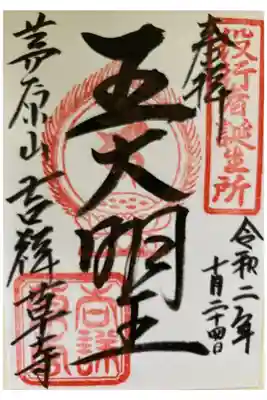 役行者誕生所
奉拝
令和二年
十月二十四日
五大明王
茅原山 吉祥草寺